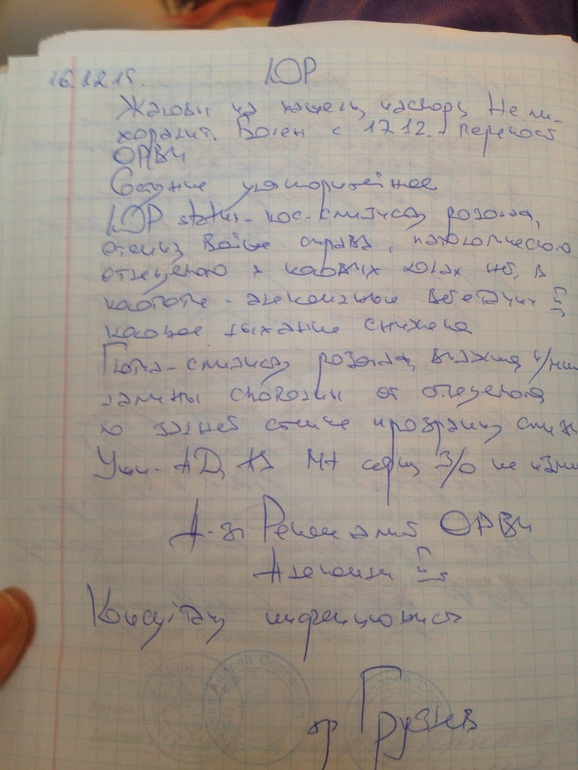 16.12.15. ЛОР
Жалобы на кашель, насморк. Не ли-
хорадит. Болен с 12.12. - перенос
ОРВИ
Состояние удовлетворительное
ЛОР status - нос - слизистая розовая,
отек больше справа, патологического
отделяемого в носовых ходах нет, в
носоглотке - аденоидные вегетации II
носовое дыхание снижено
Глотка - слизистая розовая, влажная,
лакуны свободны от отделяемого
по задней стенке прозрачная слизь
Уши - AD, AS Mt серые, з/о не изме
Д-з: ОРВИ
Аденоиды II ст.
Консультация инфекциониста